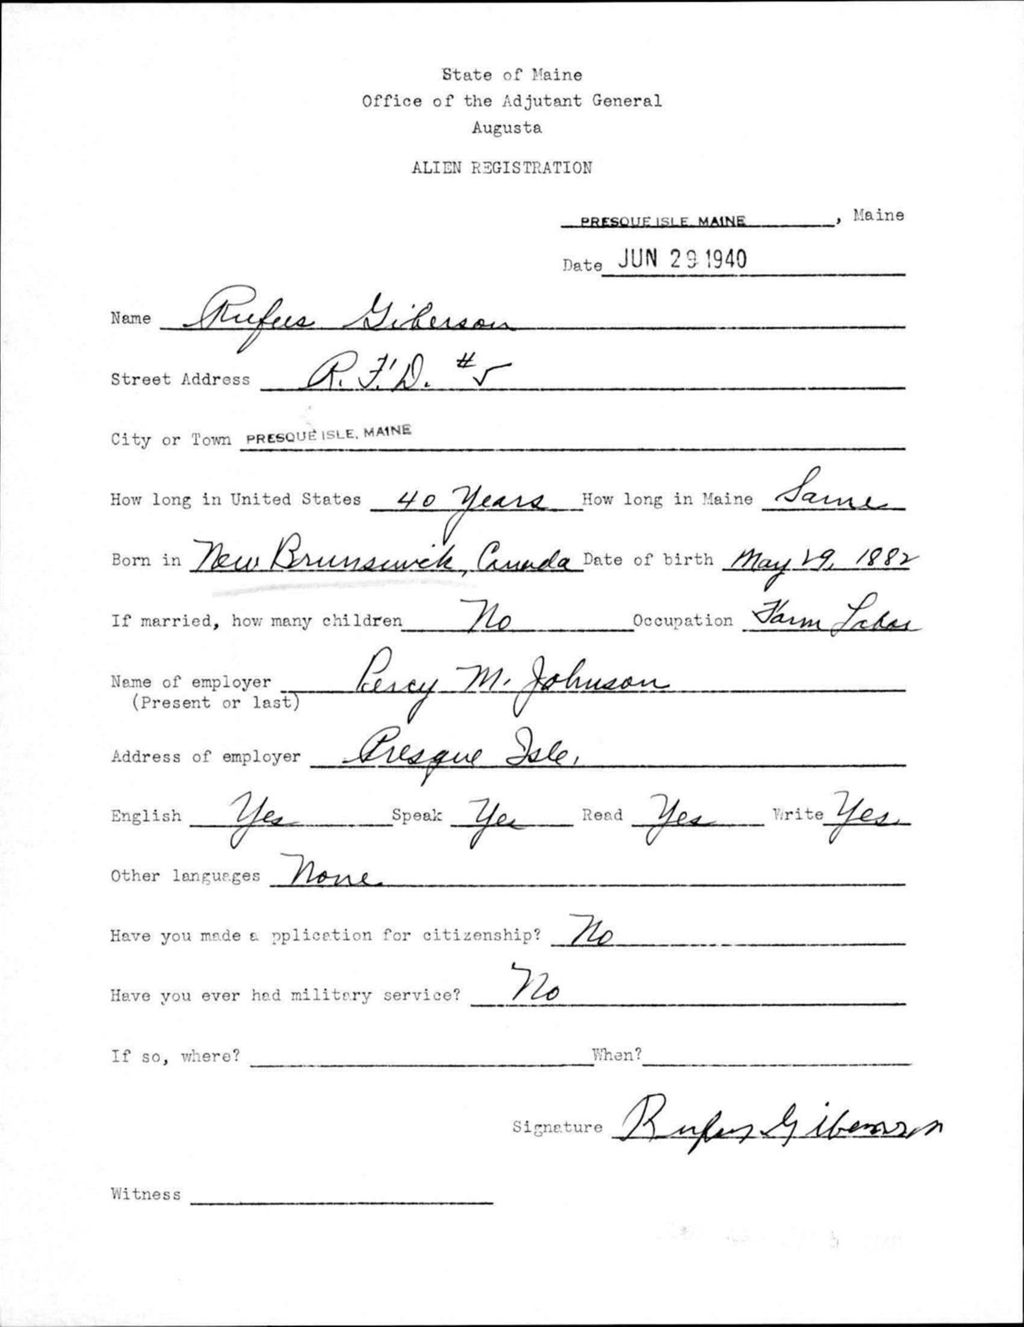 State of Maine
Office of the Adjutant General
Augusta
ALIEN REGISTRATION
PRESQUE ISLE, MAINE, Maine
Date JUN 29 1940
Name Rufus Giberson
Street Address R.F.D. #5
City or Town PRESQUE ISLE, MAINE
How long in United States 40 Years How long in Maine Same
Born in New Brunswick, Canada Date of birth May 29, 1882
If married, how many children No Occupation Farm Labor
Name of employer Percy M. Johnson
(Present or last)
Address of employer Presque Isle,
English Yes Speak Yes Read Yes Write Yes.
Other languages None
Have you made a pplication for citizenship? No
Have you ever had military service? No
If so, where? When?
Signature Rufus Giberson
Witness